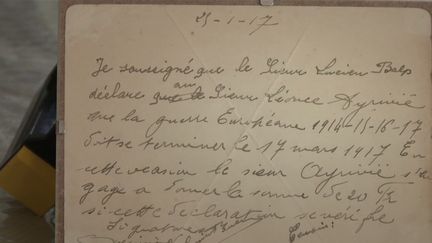 25-1-17
Je soussigné que le Sieur Lucien Balp
déclare au Sieur Léonce Ayrivié
que la guerre Européenne 1914-15-16-17
doit se terminer le 17 mars 1917 En
cette occasion le sieur Ayrivié s'en
gage a donner la somme de 20 Fr
si cette déclaration se vérifie
Signature